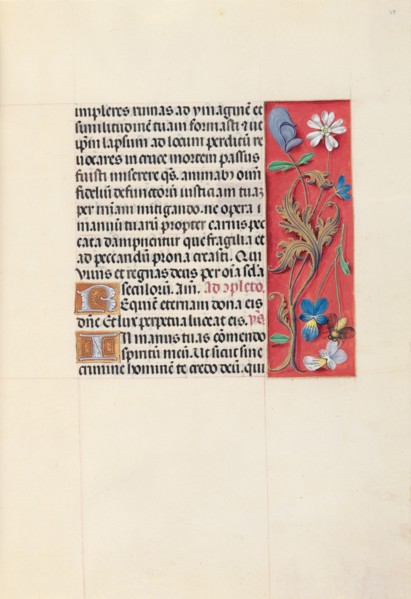 impleres ruinas ad ymaginē et
similitudinē tuam formasti & ut
ip̄m lapsum ad locum perditū re
uocares in cruce mortem passus
fuisti miserere q̄s. animab⁹ oīm
fideliū defunctorū iusticiam tuaz
per miam mitigando. ne opera
manuū tuarū propter carnis pec
cata dampnentur que fragilia et
ad peccandū prona creasti. Qui
viuis et regnas deus per oīa sēla
seculorū. Am̄. Ad ↄpleto.
Requiē eternam dona eis
dn̄e Et lux perpetua luceat eis. p̄s.
In manus tuas cōmendo
spiritū meū. Ut sicut sine
crimine hominē te credo deū. qui